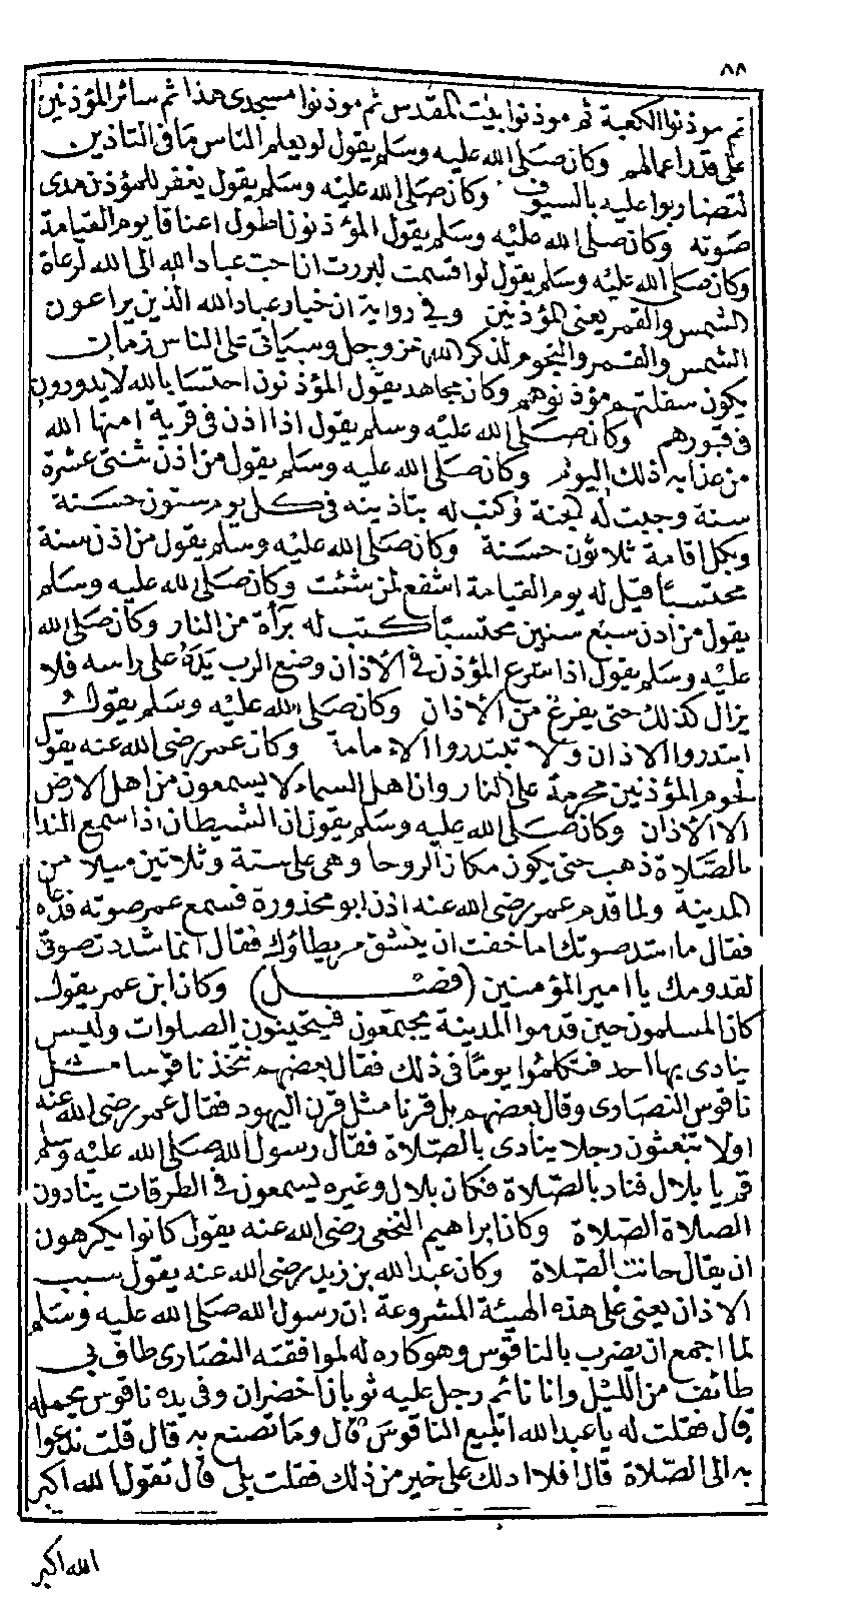 ٨٨
ثم موذنوا الكعبة ثم موذنوا بيت المقدس ثم موذنوا مسجدى هذا ثم سائر المؤذنين
على قدر اعمالهم وكان صلى الله عليه وسلم يقول لو يعلم الناس ما فى التاذين
لتضاربوا عليه بالسيوف وكان صلى الله عليه وسلم يقول يغفر للمؤذن مدى
صوته وكان صلى الله عليه وسلم يقول المؤذنون اطول اعناقا يوم القيامة
وكان صلى الله عليه وسلم يقول لو اقسمت لبررت ان احب عباد الله الى الله لرعاة
الشمس والقمر يعنى المؤذنين وفي رواية ان خيار عباد الله الذين يراعون
الشمس والقمر والنجوم لذكر الله عز وجل وسياتى على الناس زمان
يكون سفلتهم مؤذنوهم وكان مجاهد يقول المؤذنون احتسابا لله لا يدودون
فى قبورهم وكان صلى الله عليه وسلم يقول اذا اذن فى قرية امنها الله
من عذابه ذلك اليوم وكان صلى الله عليه وسلم يقول من اذن ثنتى عشرة
سنة وجبت له الجنة وكتب له بتاذينه فى كل يوم ستون حسنة
وبكل اقامة ثلاثون حسنة وكان صلى الله عليه وسلم يقول من اذن سنة
محتسبا قيل له يوم القيامة اشفع لمن شئت وكان صلى الله عليه وسلم
يقول من اذن سبع سنين محتسبا كتب له برأة من النار وكان صلى الله
عليه وسلم يقول اذا شرع المؤذن في الاذان وضع الرب يده على راسه فلا
يزال كذلك حتى يفرغ من الاذان وكان صلى الله عليه وسلم يقول
ابتدروا الاذان ولا تبتدروا الامامة وكان عمر رضى الله عنه يقول
لحوم المؤذنين محرمة على النار وان اهل السماء لا يسمعون من اهل الارض
الا الاذان وكان صلى الله عليه وسلم يقول ان الشيطان اذا سمع الندا
بالصلاة ذهب حتى يكون مكان الروحا وهى على ستة وثلاثين ميلا من
المدينة ولما قدم عمر رضى الله عنه اذن ابو محذورة فسمع عمر صوته فدعاه
فقال ما اشد صوتك اما خفت ان ينشق مريطاؤك فقال انما شددت صوتى
لقدومك يا امير المؤمنين (فصل) وكان ابن عمر يقول
كان المسلمون حين قدموا المدينة يجتمعون فيتحينون الصلوات وليس
ينادى بها احد فتكلموا يوما فى ذلك فقال بعضهم نتخذ ناقوسا مثل
ناقوس النصارى وقال بعضهم بل قرنا مثل قرن اليهود فقال عمر رضى الله عنه
اولا تبعثون رجلا ينادى بالصلاة فقال رسول الله صلى الله عليه وسلم
قم يا بلال فناد بالصلاة فكان بلال وغيره يسمعون فى الطرقات ينادون
الصلاة الصلاة وكان ابراهيم النخعى رضى الله عنه يقول كانوا يكرهون
ان يقال حانت الصلاة وكان عبد الله بن زيد رضى الله عنه يقول سبب
الاذان يعنى على هذه الهيئة المشروعة ان رسول الله صلى الله عليه وسلم
لما اجمع ان يضرب بالناقوس وهو كاره له لموافقته النصارى طاف بي
طائف من الليل وانا نائم رجل عليه ثوبان اخضران وفى يده ناقوس يحمله
قال فقلت له يا عبد الله اتبيع الناقوس قال وما تصنع به قال قلت ندعوا
به الى الصلاة قال افلا ادلك على خير من ذلك فقلت بلى قال تقول الله اكبر
الله اكبر